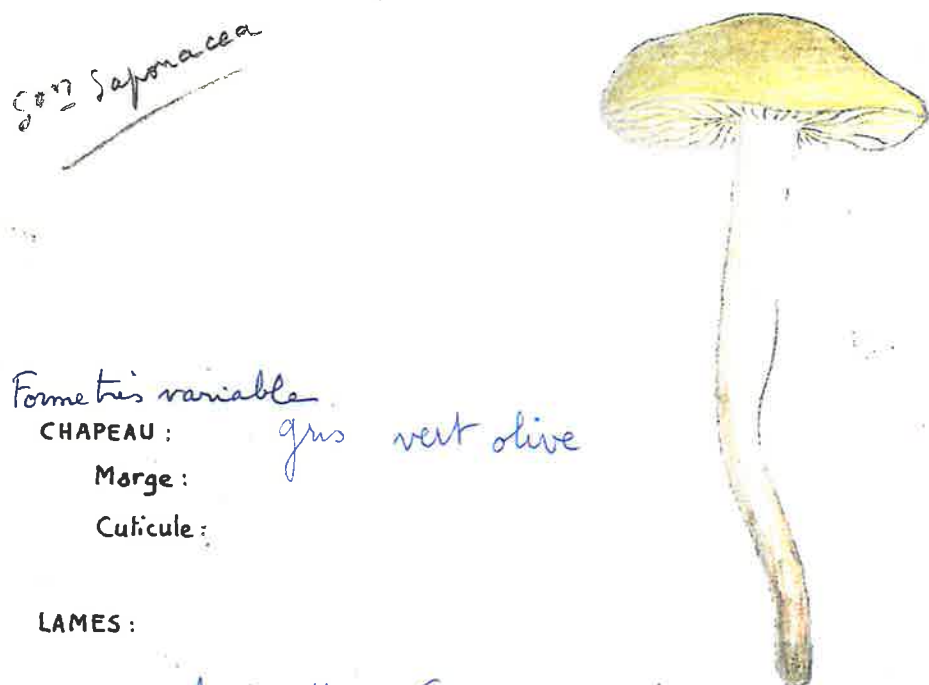 Son Saponacea
Forme très variable
CHAPEAU : gris vert olive
Marge :
Cuticule :
LAMES :